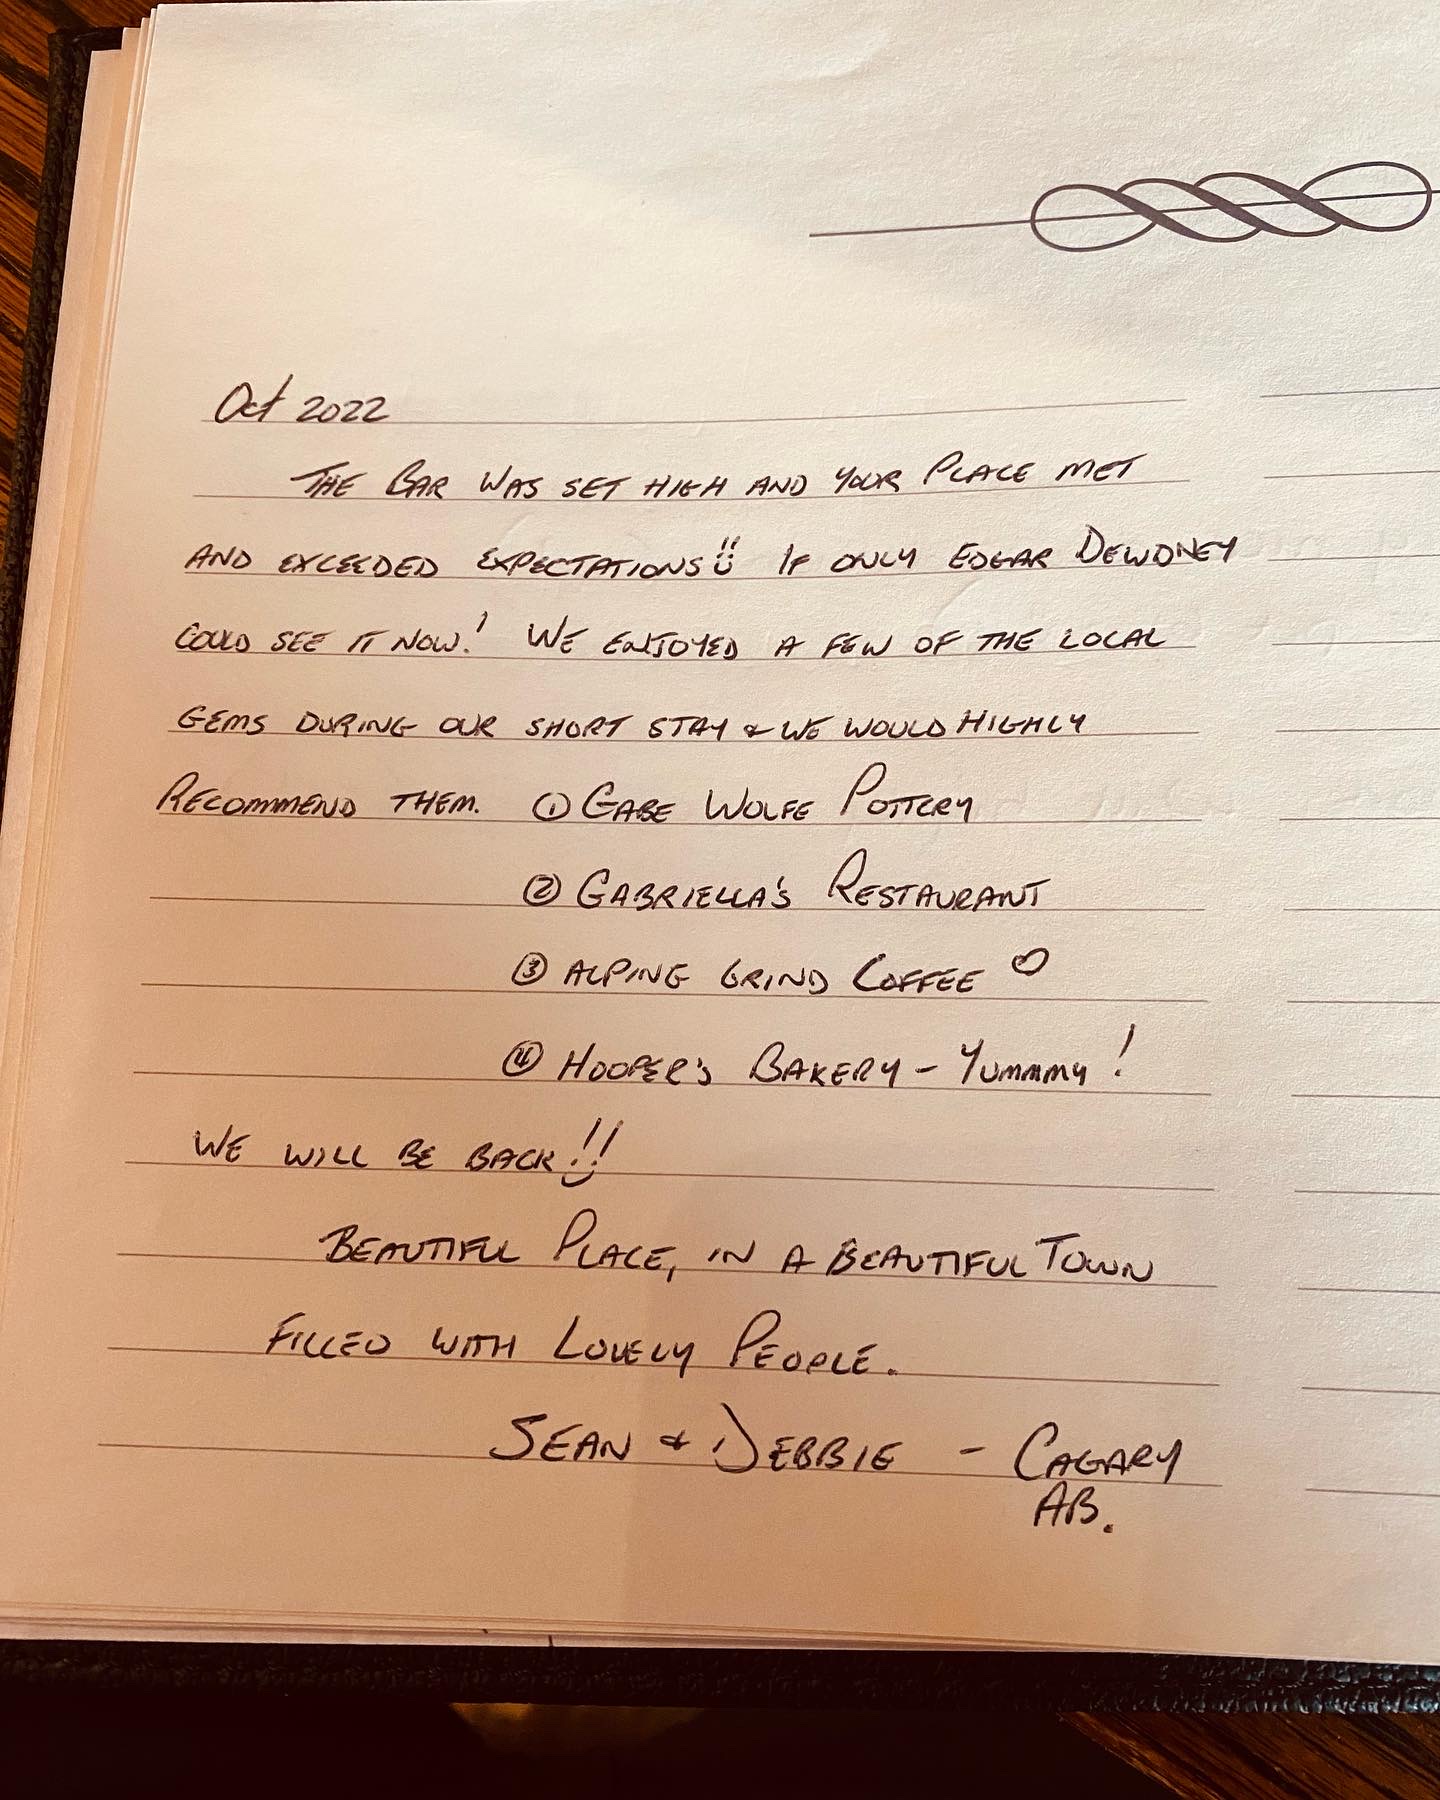 Oct 2022
THE BAR WAS SET HIGH AND YOUR PLACE MET
AND EXCEEDED EXPECTATIONS!! IF ONLY EDGAR DEWDNEY
COULD SEE IT NOW! WE ENJOYED A FEW OF THE LOCAL
GEMS DURING OUR SHORT STAY & WE WOULD HIGHLY
RECOMMEND THEM. ① GABE WOLFE POTTERY
② GABRIELLA'S RESTAURANT
③ ALPING GRIND COFFEE ♡
④ HOOPER'S BAKERY - YUMMMY!
WE WILL BE BACK!!
BEAUTIFUL PLACE, IN A BEAUTIFUL TOWN
FILLED WITH LOVELY PEOPLE.
SEAN & DEBBIE - CAGARY
AB.